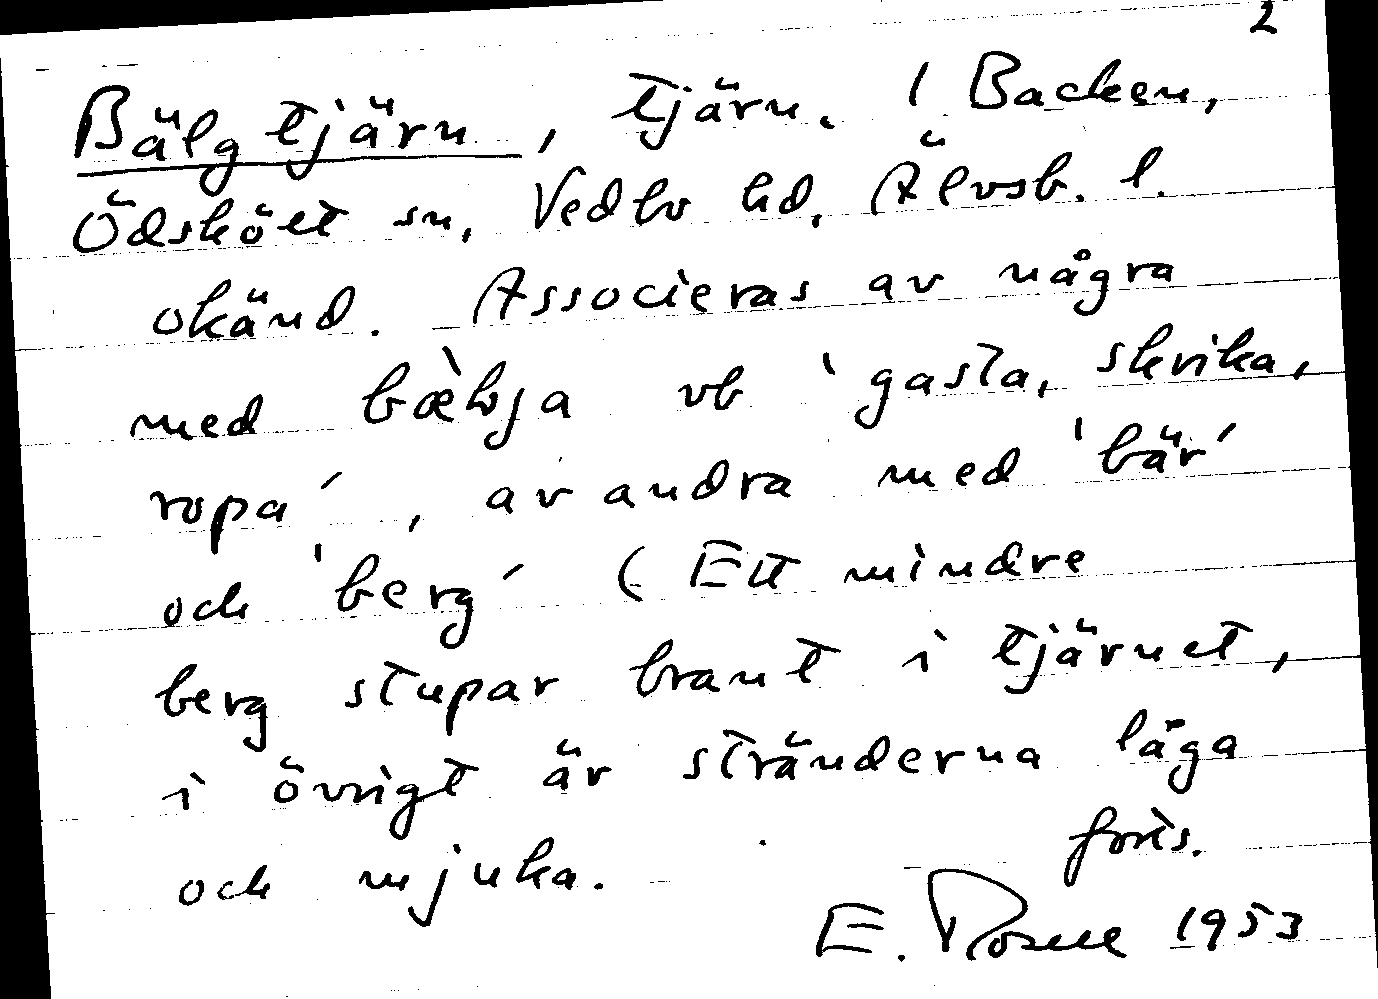 2
Bälgtjärn, tjärn. 1 Backen,
Ödskölt sn, Vedbo hd, Älvsb. l.
okänd. Associeras av några
med bæ̀lvja vb 'gasta, skrika,
ropa', av andra med 'bär'
och 'berg' (Ett mindre
berg stupar brant i tjärnet,
i övrigt är stränderna låga
och mjuka. forts.
E. 1953